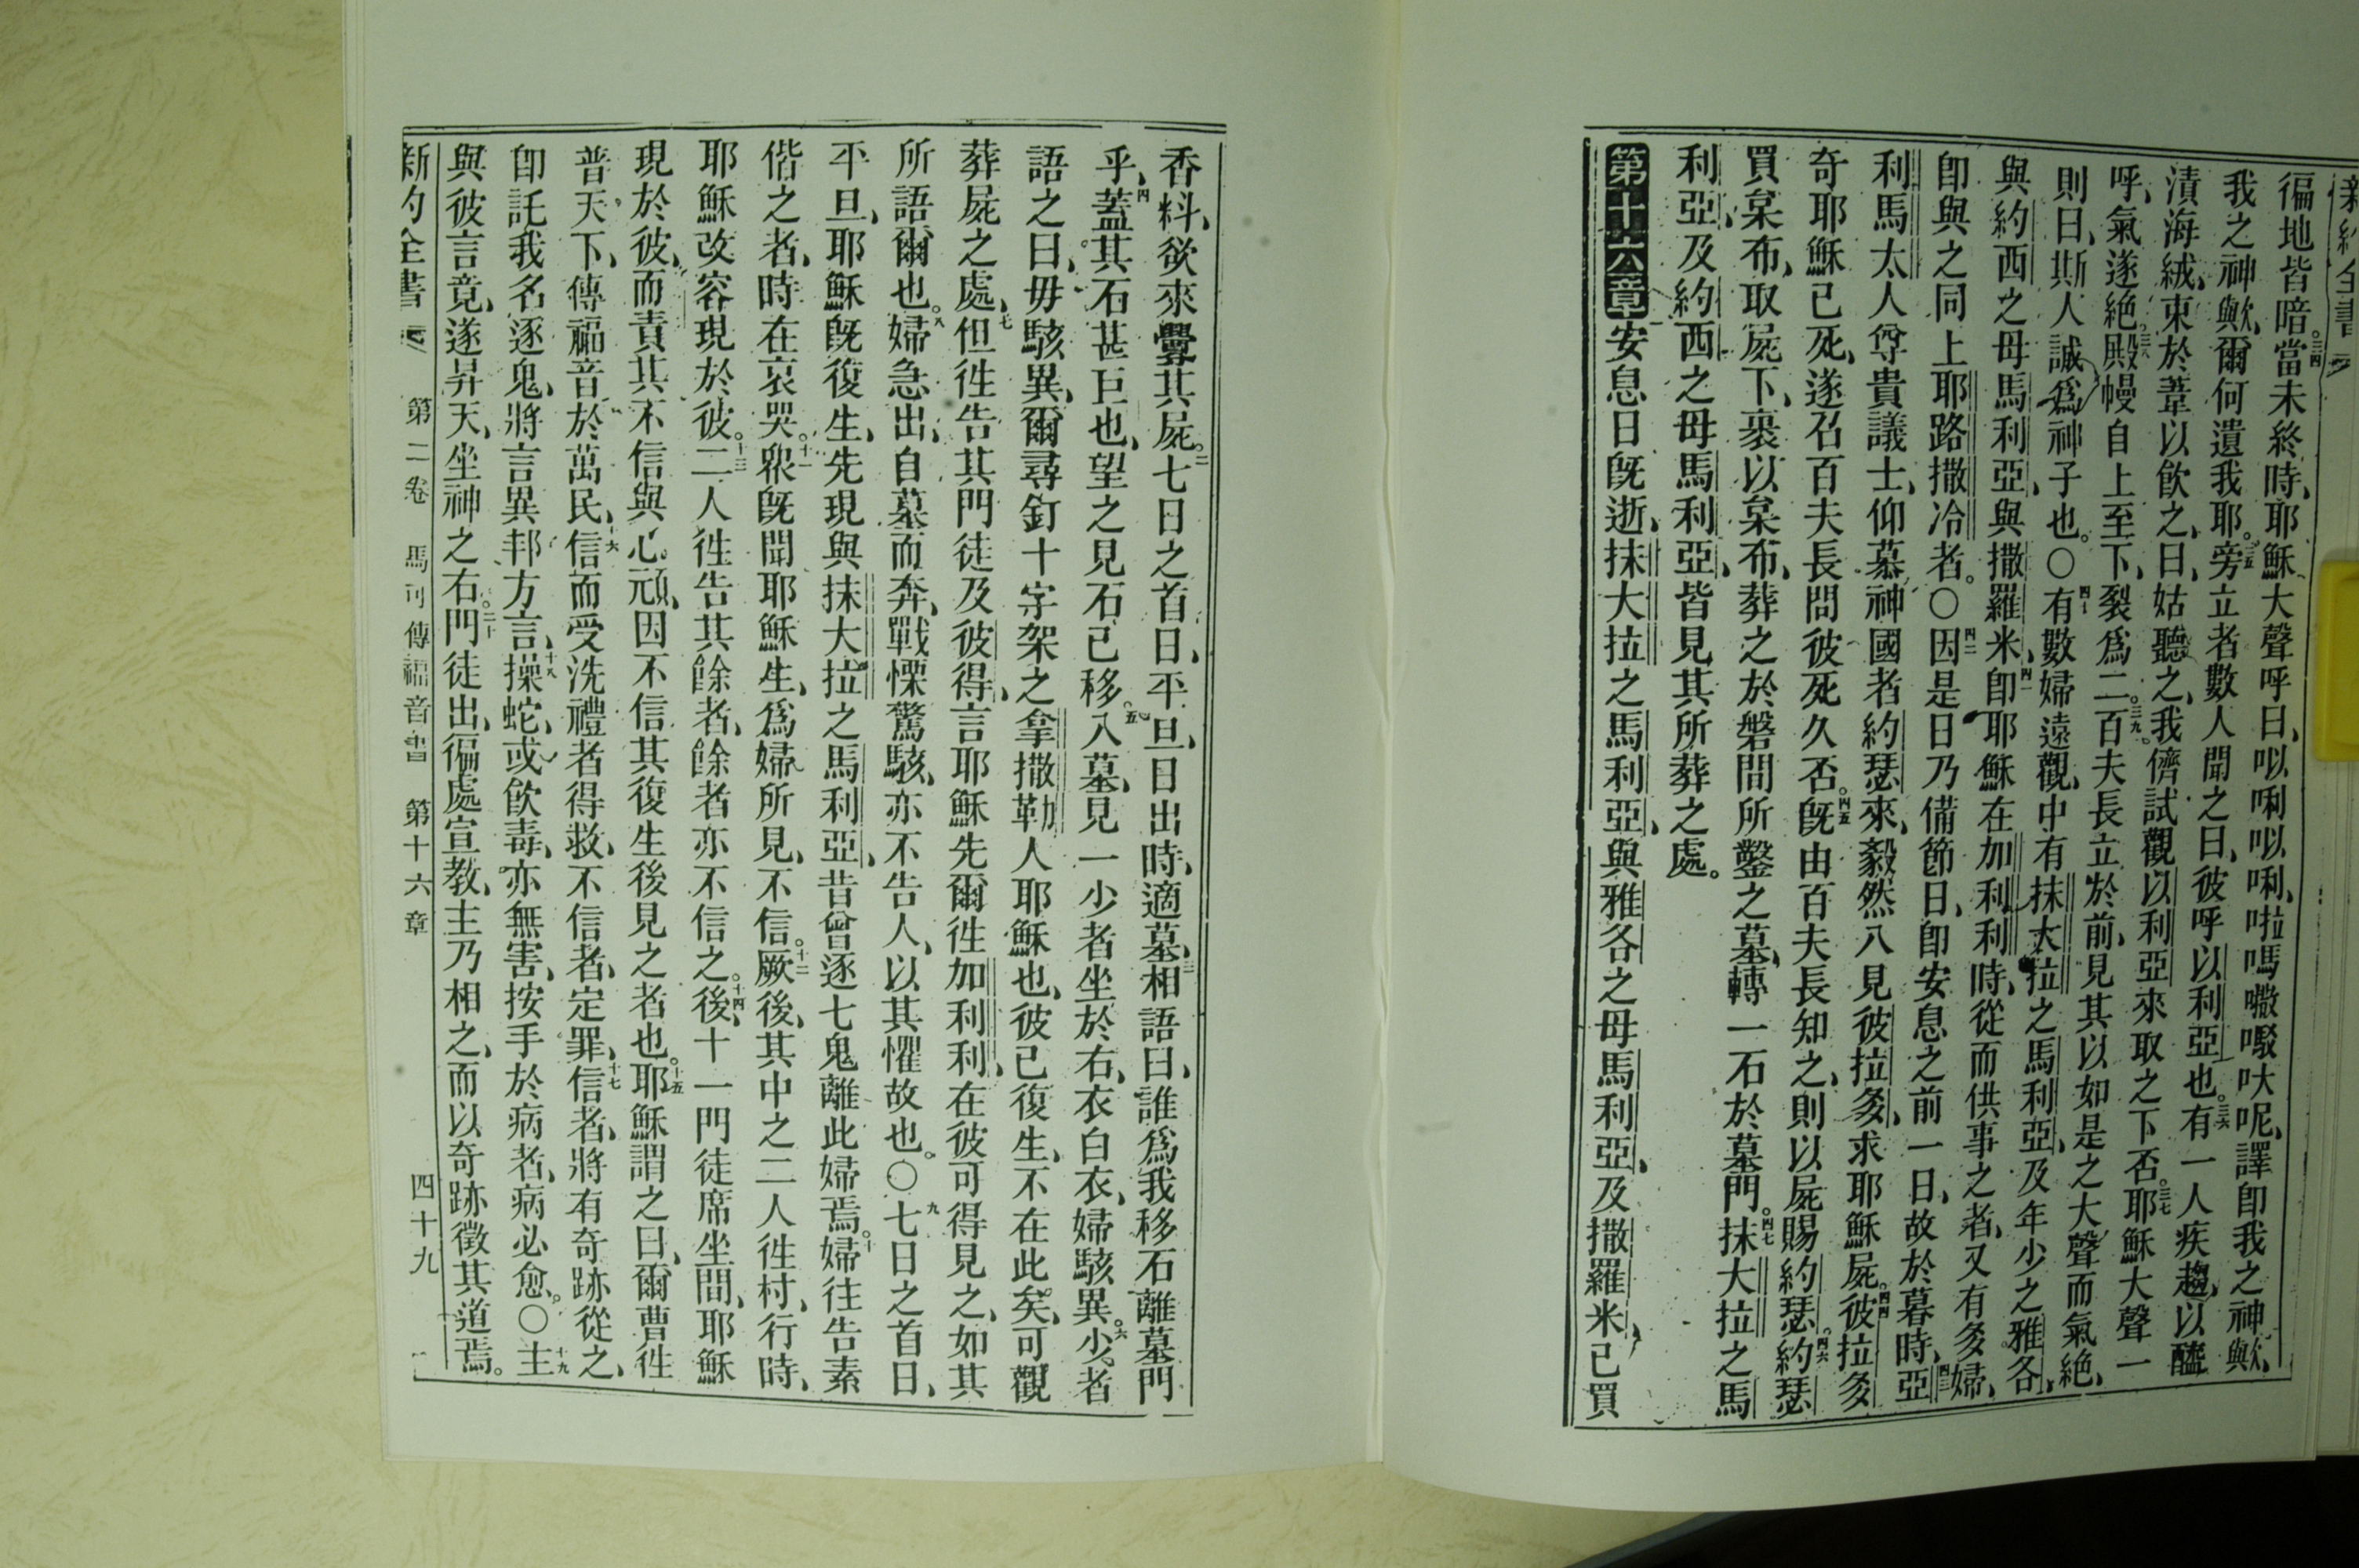 新約全書
徧地皆暗。三四當未終時、耶穌大聲呼曰、㕥唎㕥唎、啦嗎㘔嘅呔呢、譯卽我之神歟、
我之神歟、爾何遺我耶。三五旁立者數人聞之、曰、彼呼以利亞也。三六有一人疾趨、以醯
漬海絨、束於葦以飲之、曰、姑聽之、我儕試觀以利亞來取之下否。三七耶穌大聲一
呼、氣遂絕。三八殿幔自上至下、裂爲二。三九百夫長立於前、見其以如是之大聲而氣絕、
則曰、斯人誠爲神子也。○四十有數婦遠觀、中有抹大拉之馬利亞、及年少之雅各、
與約西之母馬利亞、與撒羅米、四一卽耶穌在加利利時、從而供事之者、又有多婦、
卽與之同上耶路撒冷者。○四二因是日乃備節日、卽安息之前一日、故於暮時、四三亞
利馬太人尊貴議士、仰慕神國者約瑟來、毅然入見彼拉多、求耶穌屍。四四彼拉多
奇耶穌已死、遂召百夫長問彼死久否。四五旣由百夫長知之、則以屍賜約瑟。四六約瑟
買枲布、取屍下、裹以枲布、葬之於磐間所鑿之墓、轉一石於墓門。四七抹大拉之馬
利亞、及約西之母馬利亞、皆見其所葬之處。
第十六章安息日旣逝、抹大拉之馬利亞、與雅各之母馬利亞、及撒羅米已買
香料、欲來釁其屍。二七日之首日、平旦、日出時、適墓、三相語曰、誰爲我移石離墓門
乎、四蓋其石甚巨也、望之見石已移。五入墓、見一少者坐於右、衣白衣、婦駭異。六少者
語之曰、毋駭異、爾尋釘十字架之拿撒勒人耶穌也、彼已復生、不在此矣、可觀
葬屍之處、七但徃告其門徒及彼得、言耶穌先爾徃加利利、在彼可得見之、如其
所語爾也。八婦急出、自墓而奔、戰慄驚駭、亦不告人、以其懼故也。○九七日之首日、
平旦、耶穌旣復生、先現與抹大拉之馬利亞、昔曾逐七鬼離此婦焉。十婦往告素
偕之者、時在哀哭。十一衆旣聞耶穌生、爲婦所見、不信。十二厥後、其中之二人徃村、行時、
耶穌改容現於彼。十三二人徃告其餘者、餘者亦不信之。十四後、十一門徒席坐間、耶穌
現於彼、而責其不信與心頑、因不信其復生後見之者也。十五耶穌謂之曰、爾曹徃
普天下、傳福音於萬民、十六信而受洗禮者得救、不信者、定罪、十七信者、將有奇跡從之、
卽託我名逐鬼、將言異邦方言、十八操蛇、或飲毒、亦無害、按手於病者、病必愈。○十九主
與彼言竟、遂昇天、坐神之右。二十門徒出、徧處宣教、主乃相之、而以奇跡徵其道焉。
新約全書 第二卷 馬可傳福音書 第十六章 四十九